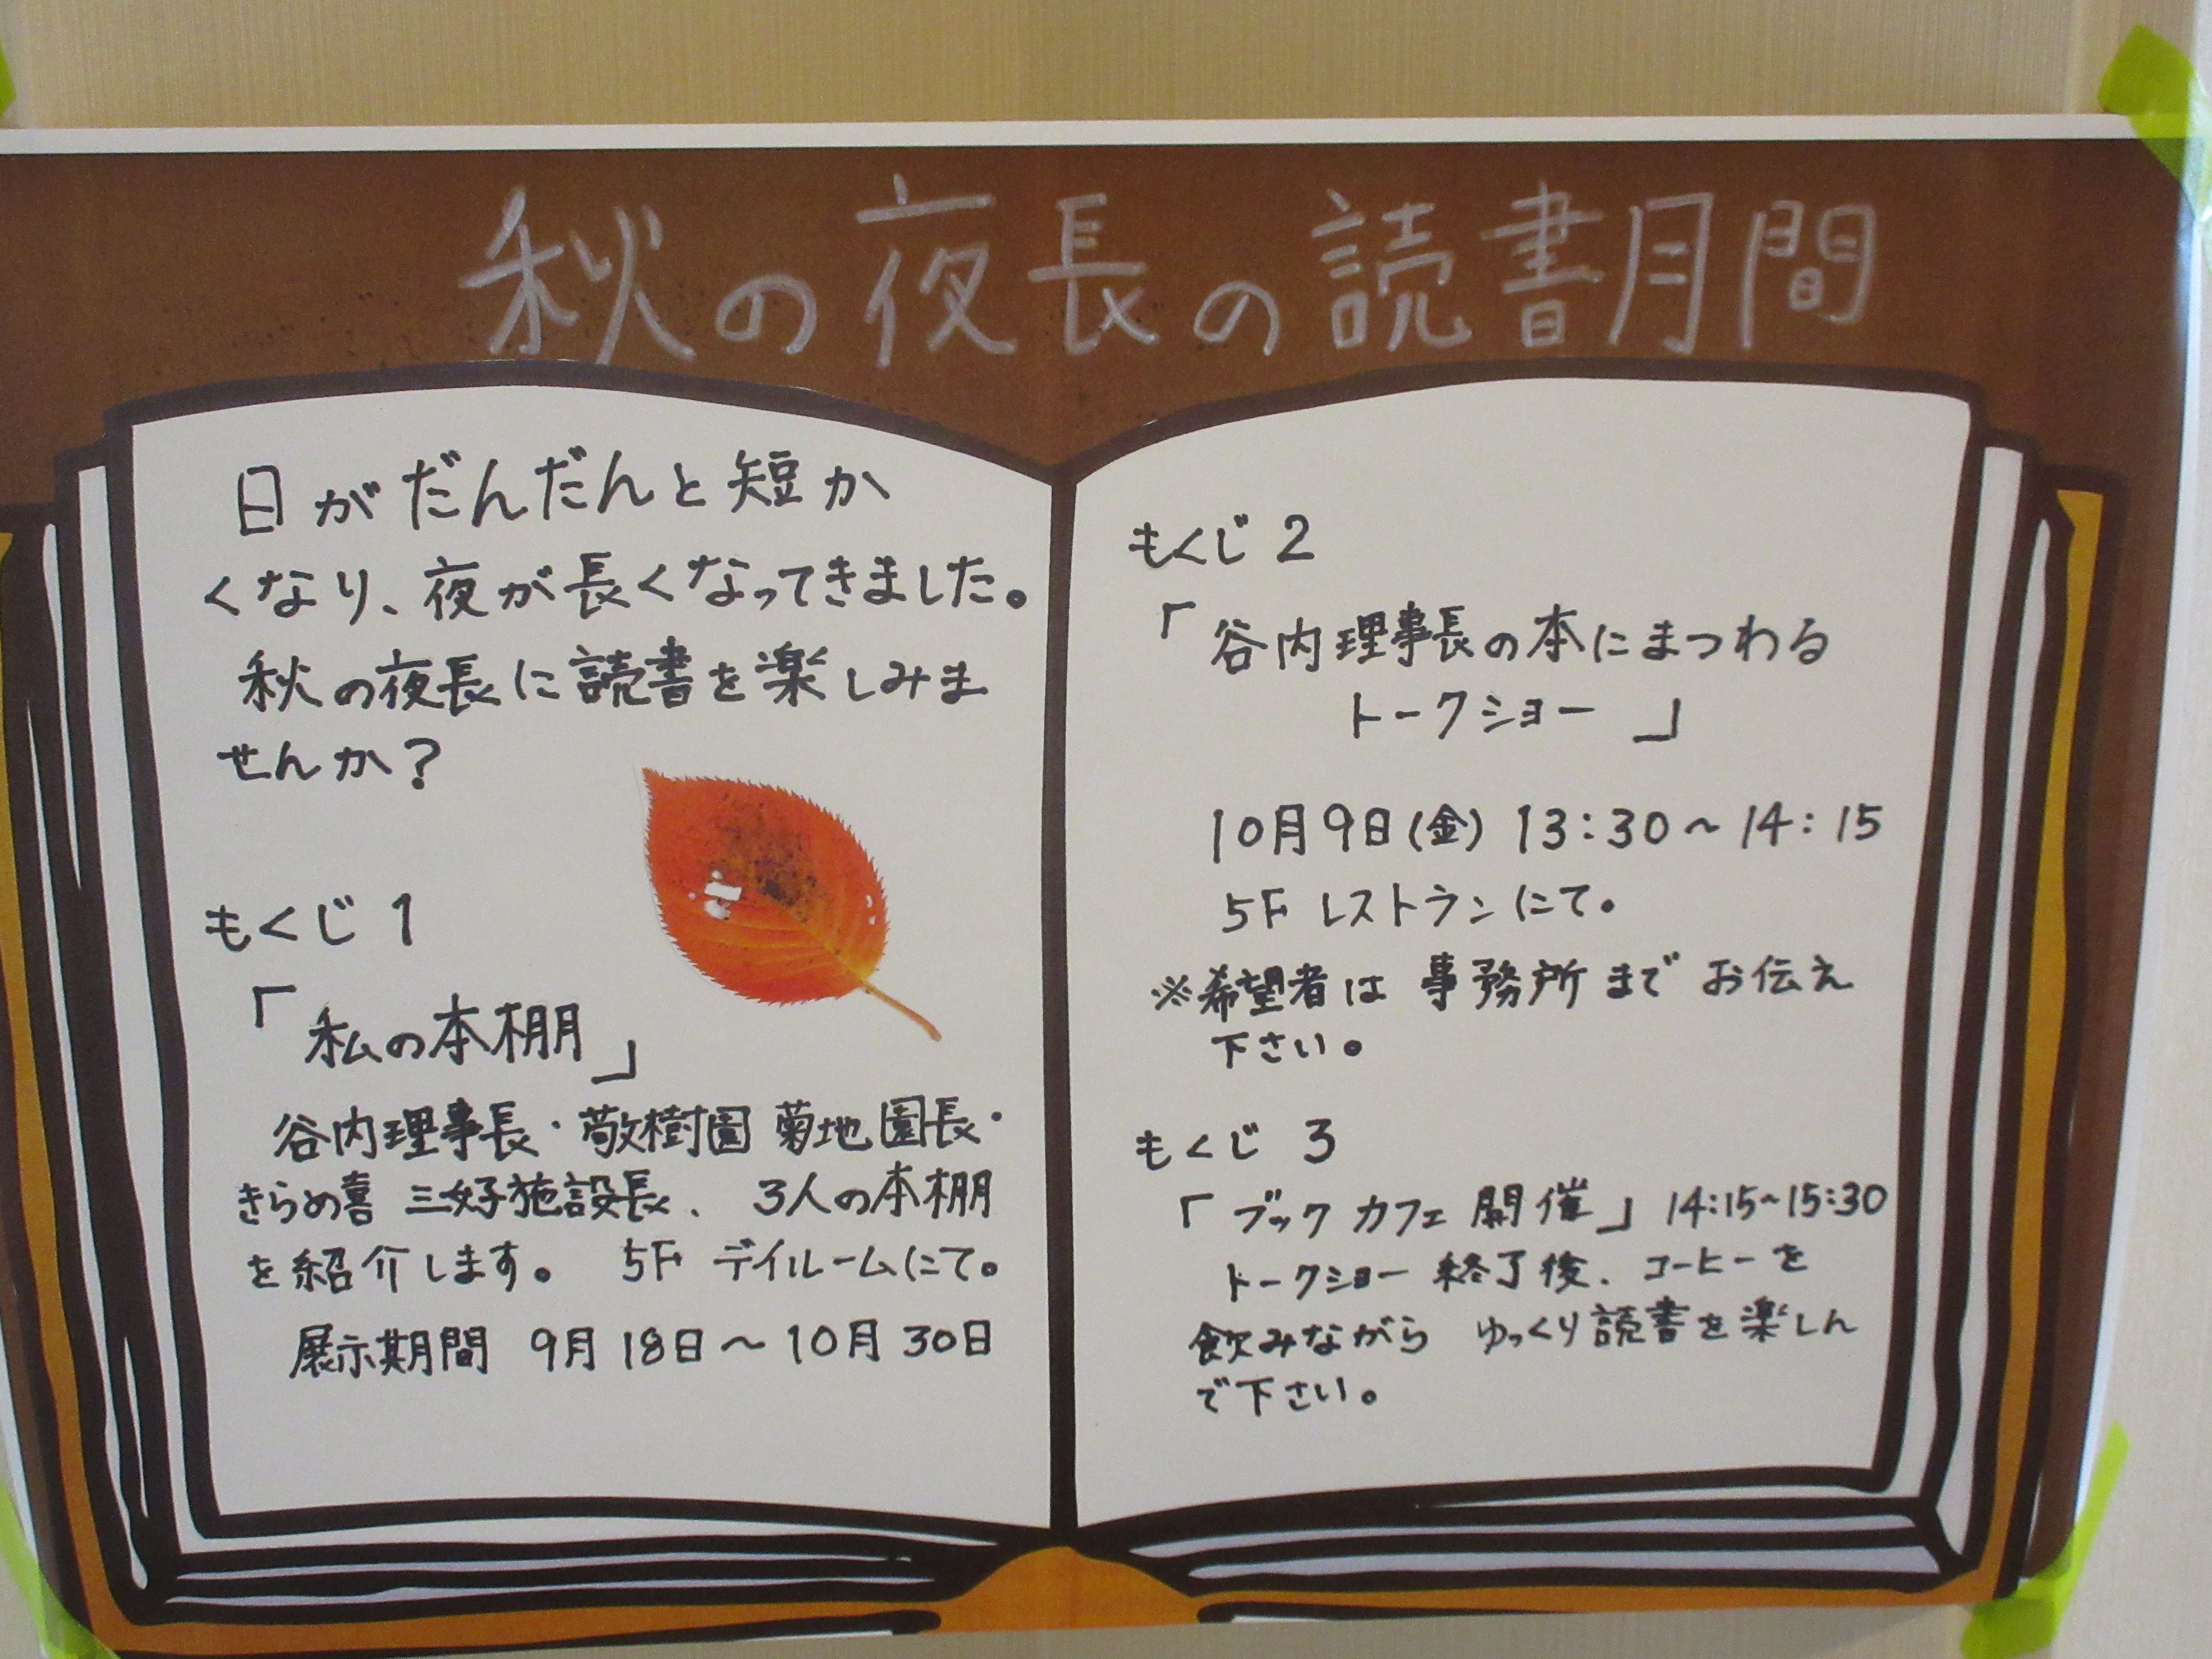 秋の夜長の読書月間
日がだんだんと短か
くなり、夜が長くなってきました。
秋の夜長に読書を楽しみま
せんか?
もくじ 1
「私の本棚」
谷内理事長・敬樹園 菊地園長・
きらめ喜 三好施設長、 3人の本棚
を紹介します。 5F デイルームにて。
展示期間 9月18日～10月30日
もくじ 2
「谷内理事長の本にまつわる
トークショー」
10月9日(金) 13:30～14:15
5F レストランにて。
※希望者は 事務所まで お伝え
下さい。
もくじ 3
「ブック カフェ 開催」14:15～15:30
トークショー 終了後、コーヒーを
飲みながら ゆっくり読書を楽しん
で下さい。